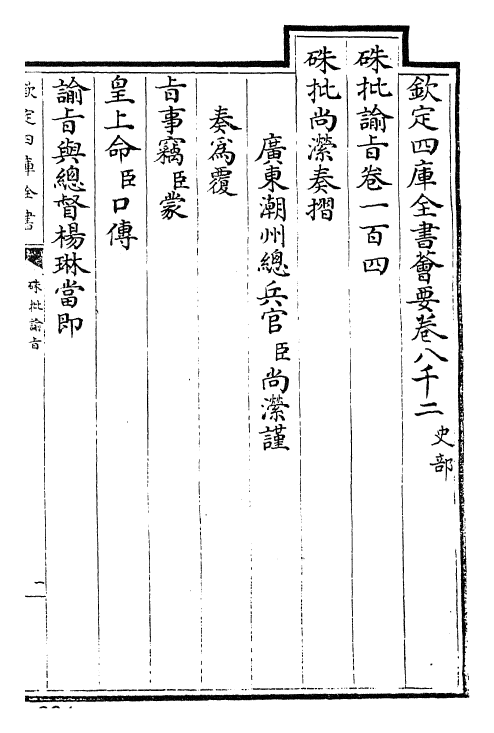 欽定四庫全書薈要卷八千二 史部
硃批諭旨卷一百四
硃批尚瀠奏摺
廣東潮州總兵官臣尚瀠謹
奏為覆
旨事竊臣蒙
皇上命臣口傳
諭旨與總督楊琳當即
欽定四庫全書
硃批諭旨
一